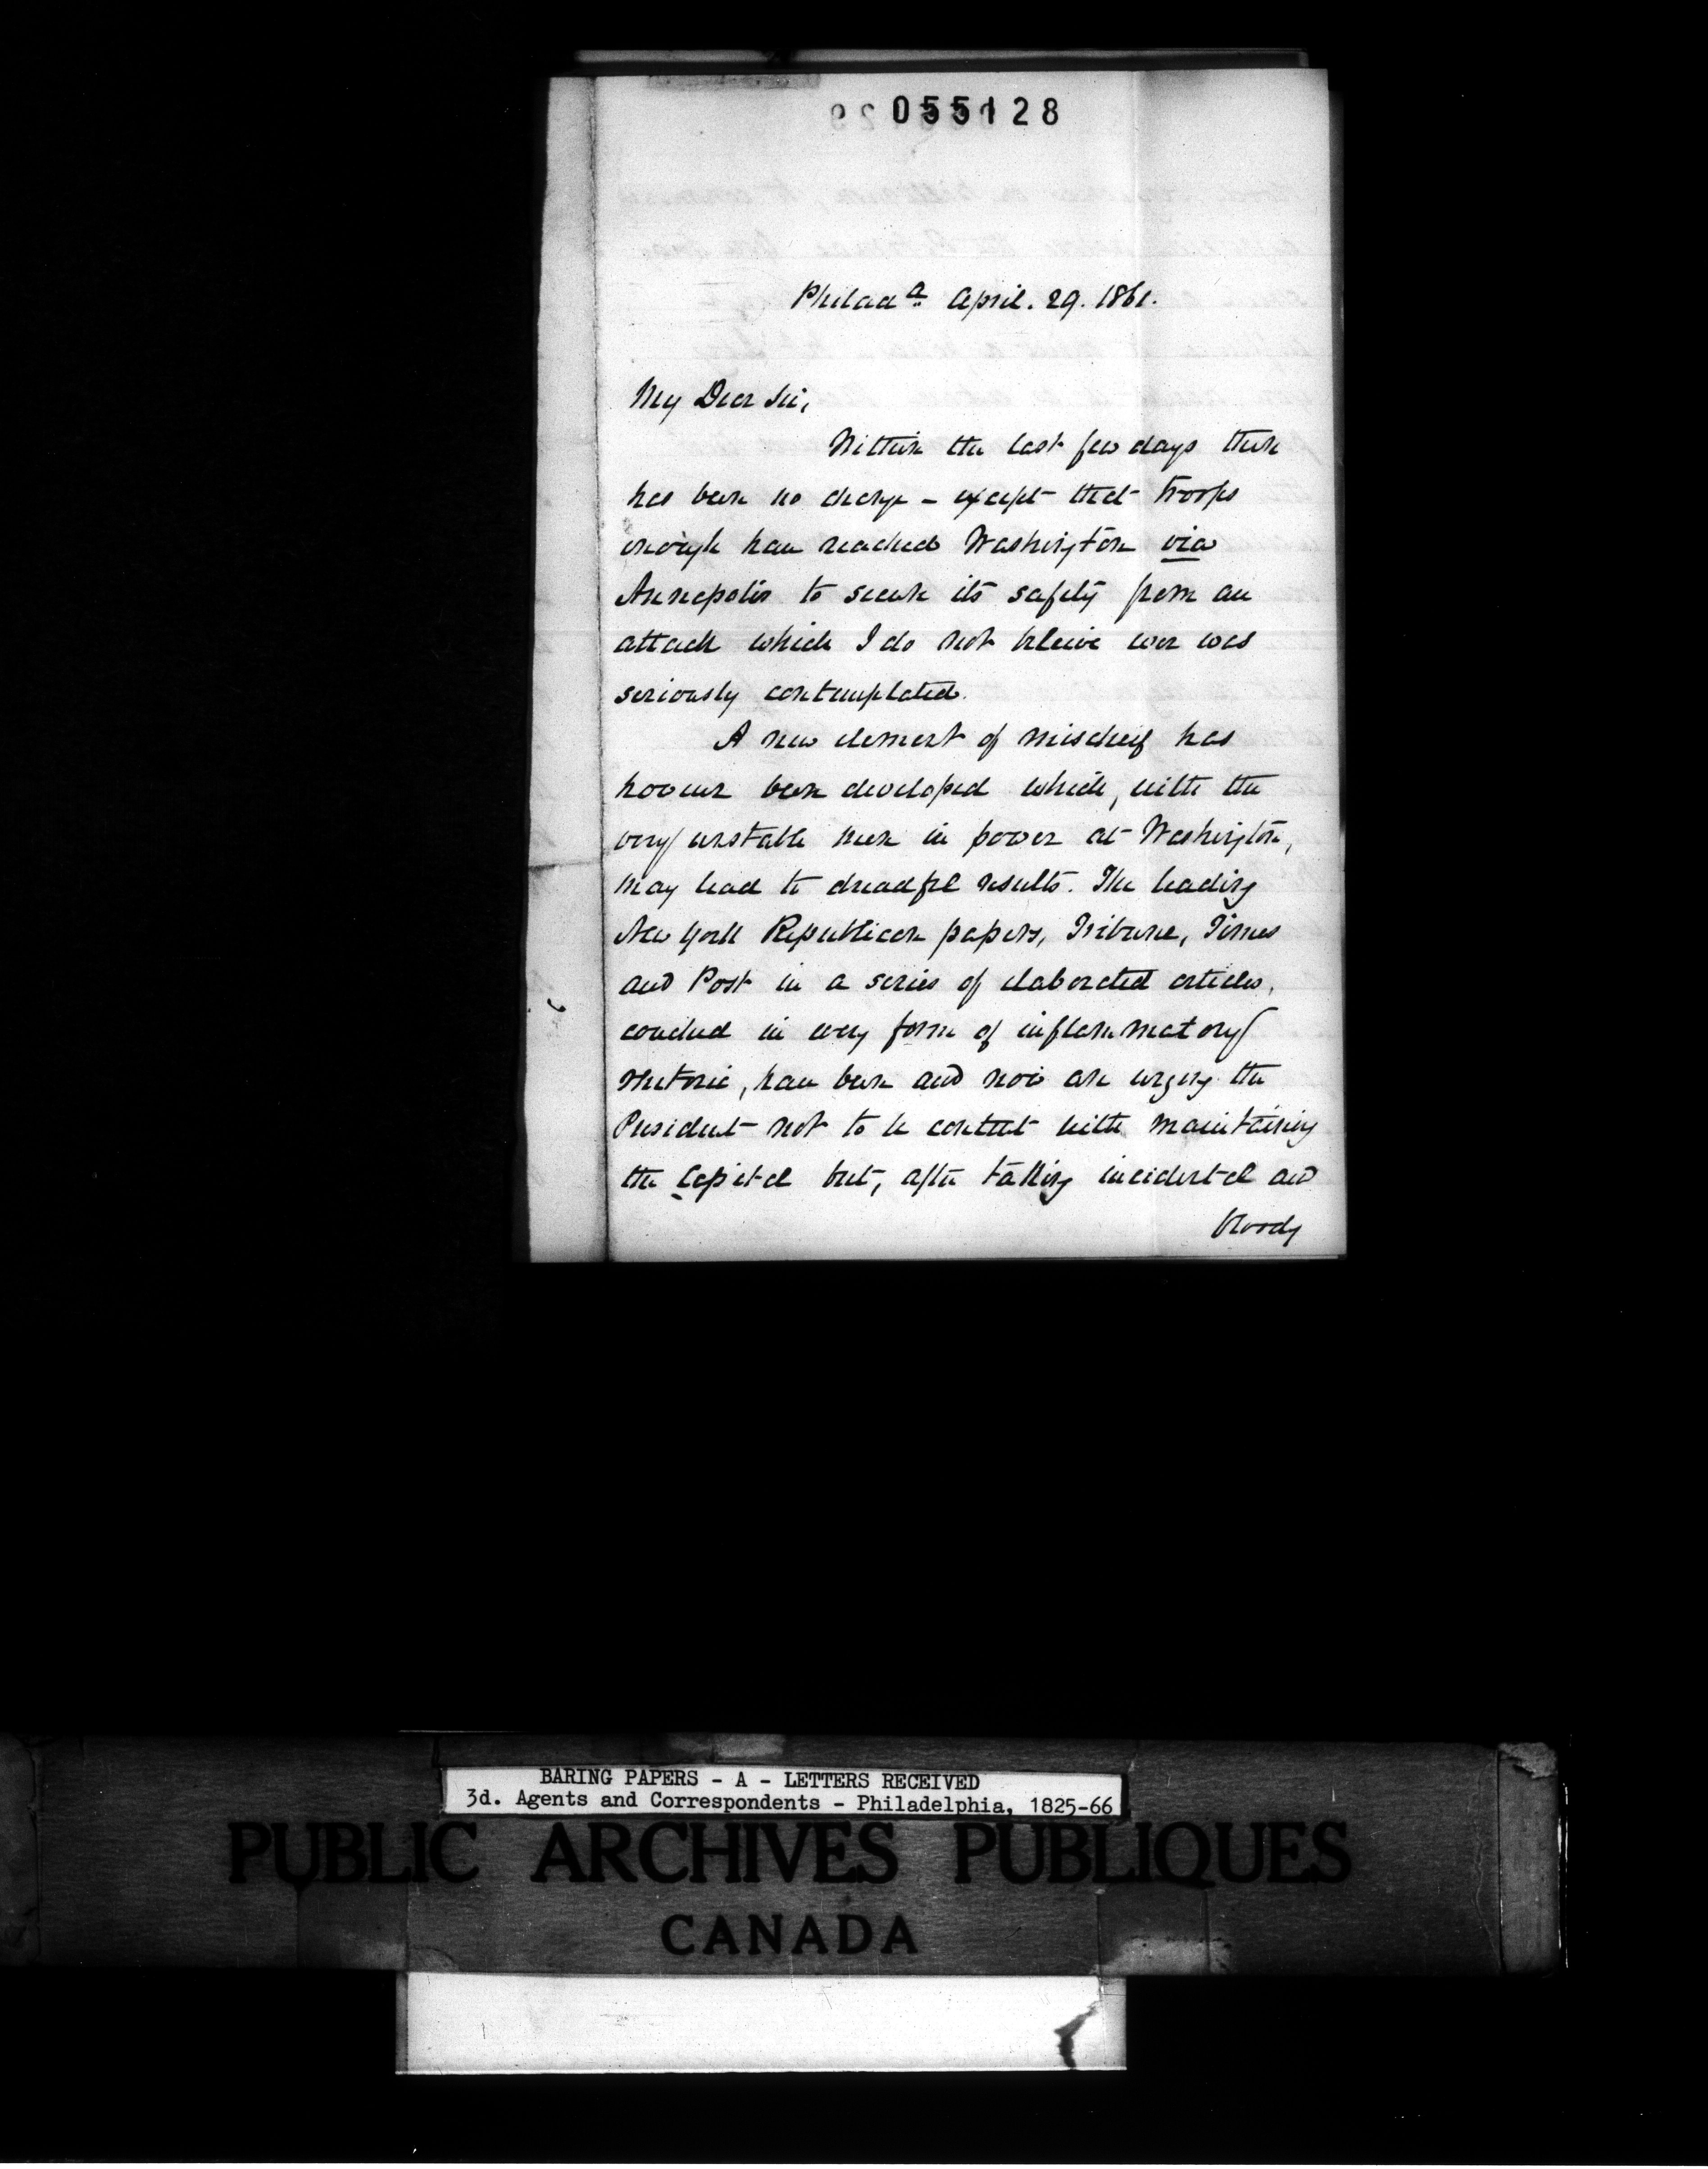 055128
Philad.ª April. 29. 1861.
My Dear Sir,
Within the last few days there
has been no change - except that troops
enough have reached Washington via
Annapolis to secure its safety from an
attack which I do not beleive ever was
seriously contemplated.
A new element of mischeif has
however been developed which, with the
very unstable men in power at Washington,
may lead to dreadful results. The leading
New York Republican papers, Tribune, Times
and Post in a series of elaborated articles,
couched in every form of inflammatory
rhetoric, have been and now are urging the
President not to be content with maintaining
the Capital but, after taking incidental and
bloody
BARING PAPERS - A - LETTERS RECEIVED
3d. Agents and Correspondents - Philadelphia, 1825-66
PUBLIC ARCHIVES PUBLIQUES
CANADA